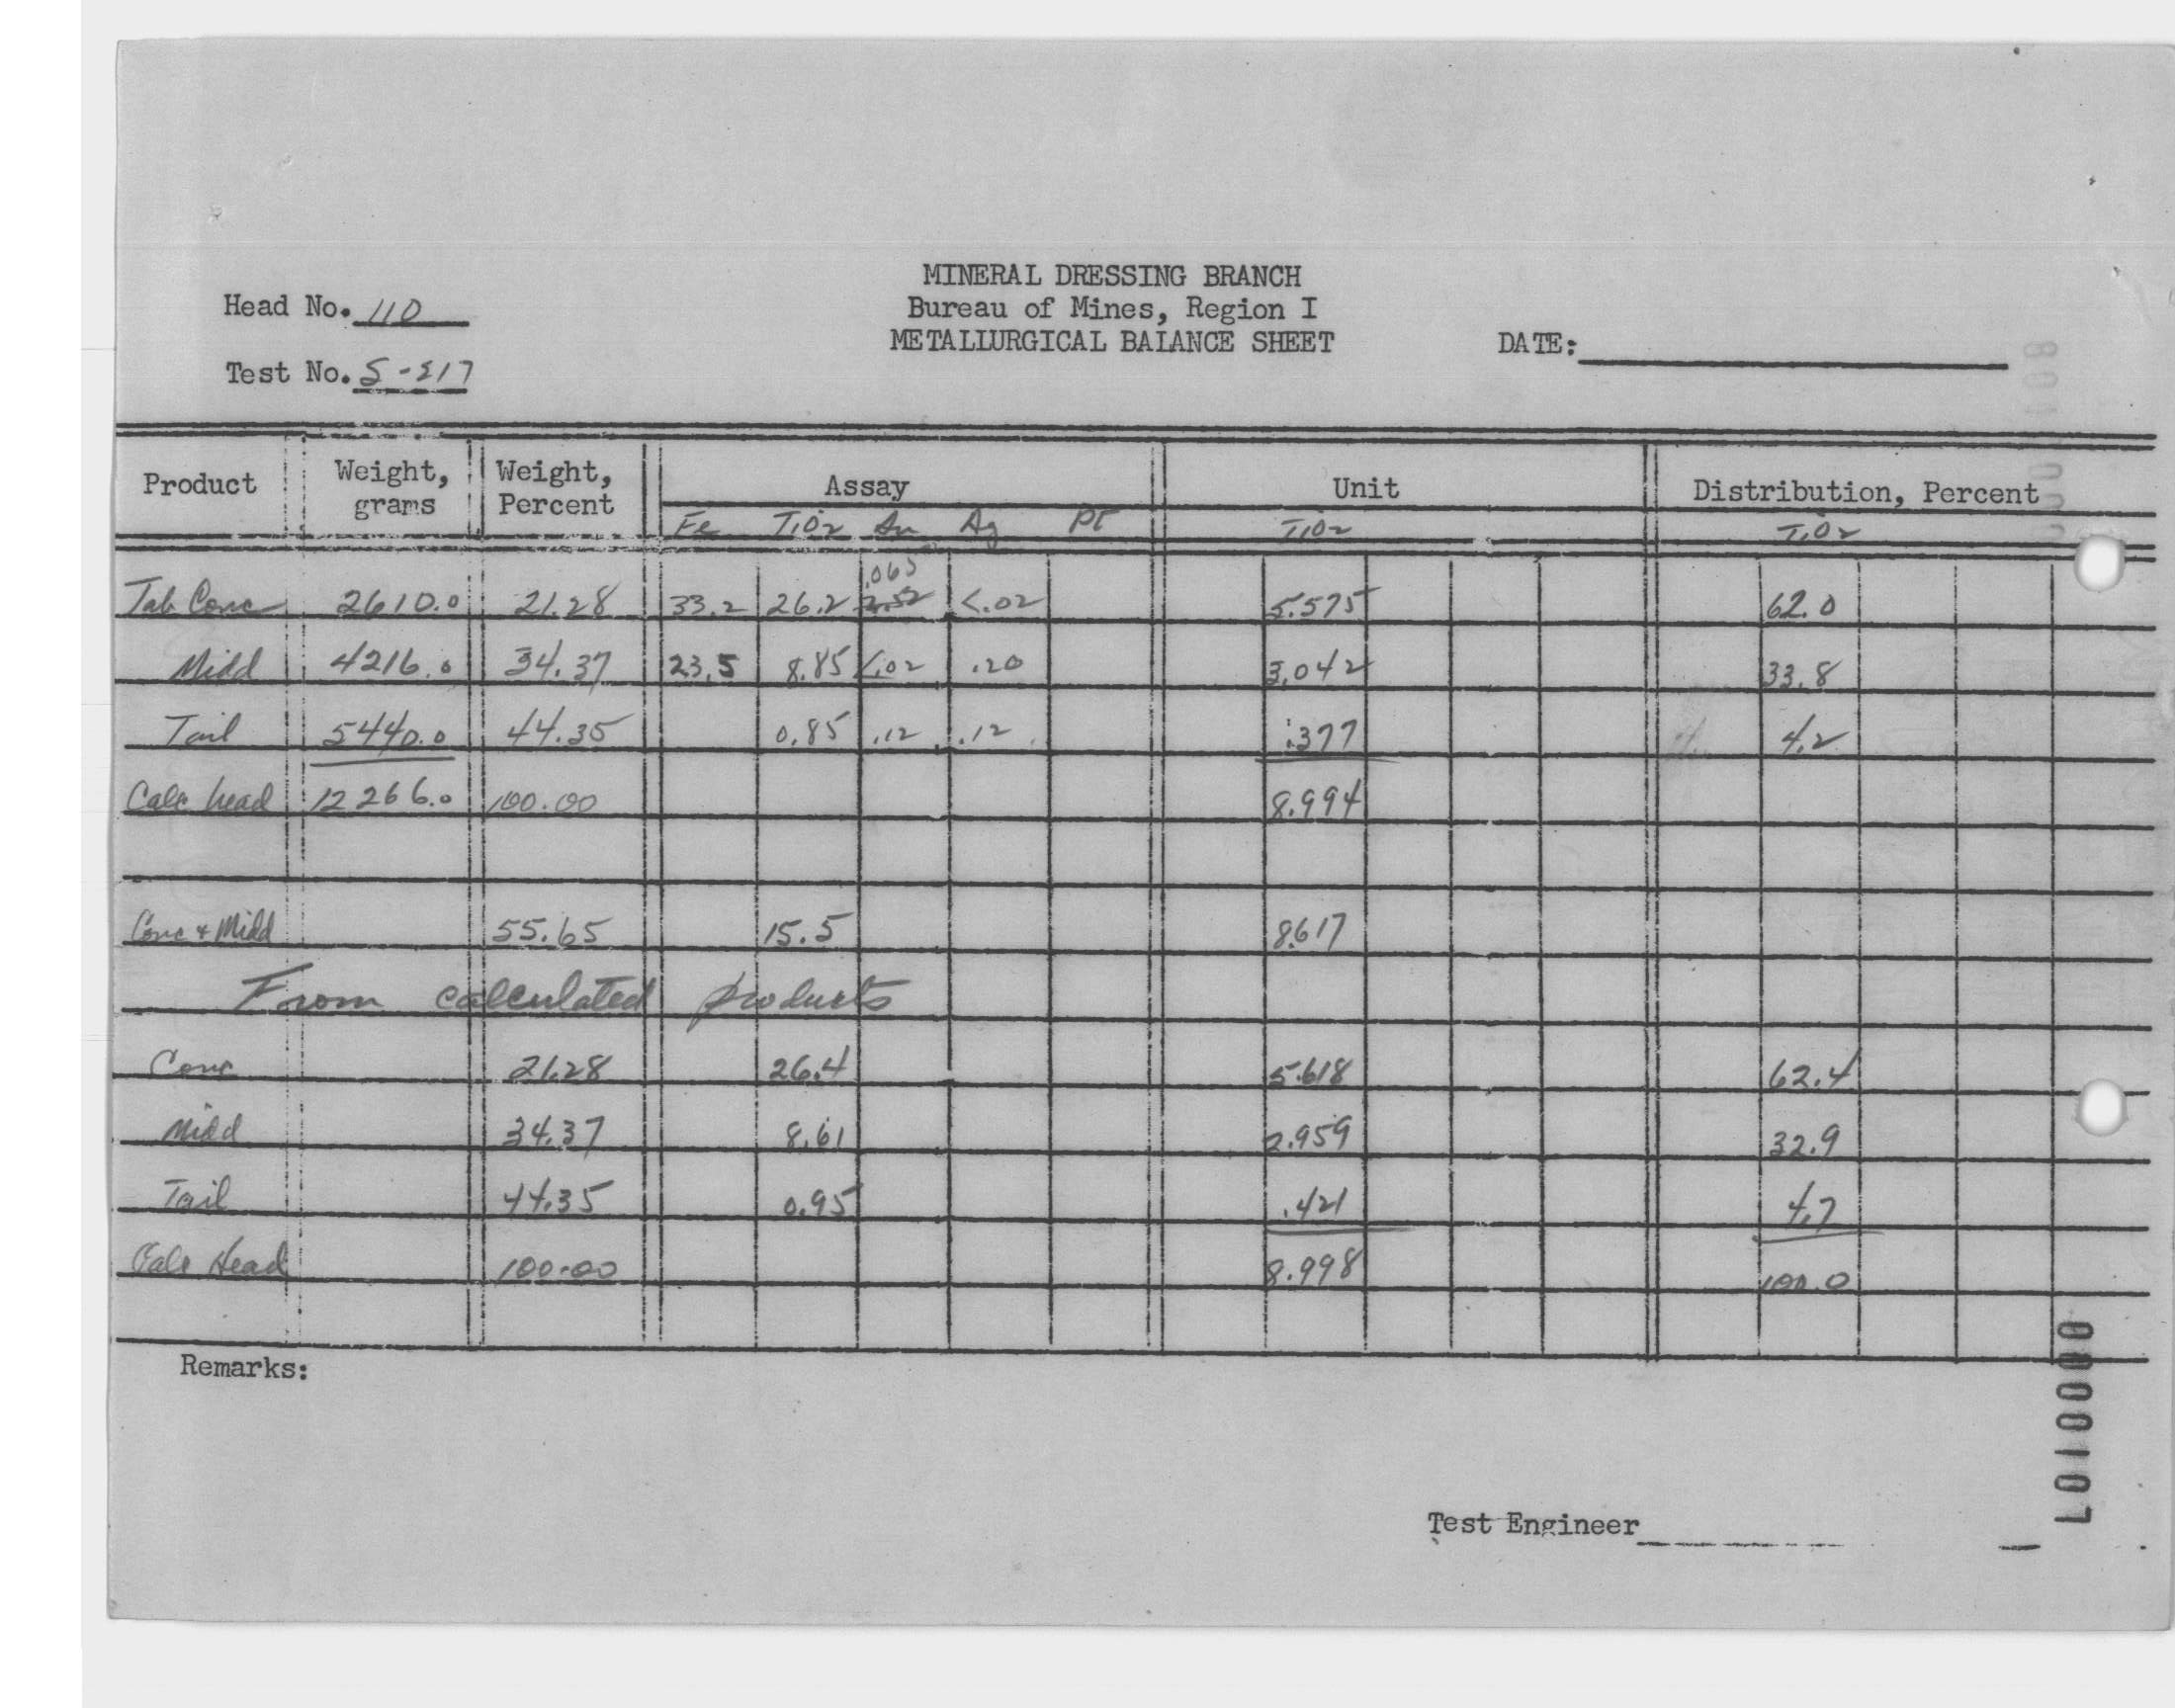 MINERAL DRESSING BRANCH
Head No. 110 Bureau of Mines, Region I
METALLURGICAL BALANCE SHEET DATE:
Test No.
Product Weight, grams Weight, Percent Assay Unit Distribution, Percent
Fe TiO2 Au Ag Pt TiO2 TiO2
.065
Tab Conc 2610.0 21.28 33.2 26.2 <.02 5.575 62.0
Midd 4216.0 34.37 23.5 8.85 <.02 .20 3.042 33.8
Tail 5440.0 44.35 0.85 .12 .12 .377 4.2
Calc head 12266.0 100.00 8.994
Conc + Midd 55.65 15.5 8.617
From calculated products
Conc 21.28 26.4 5.618 62.4
Midd 34.37 8.61 2.959 32.9
Tail 44.35 0.95 .421 4.7
Calc Head 100.00 8.998 100.0
Remarks:
Test Engineer
0000107